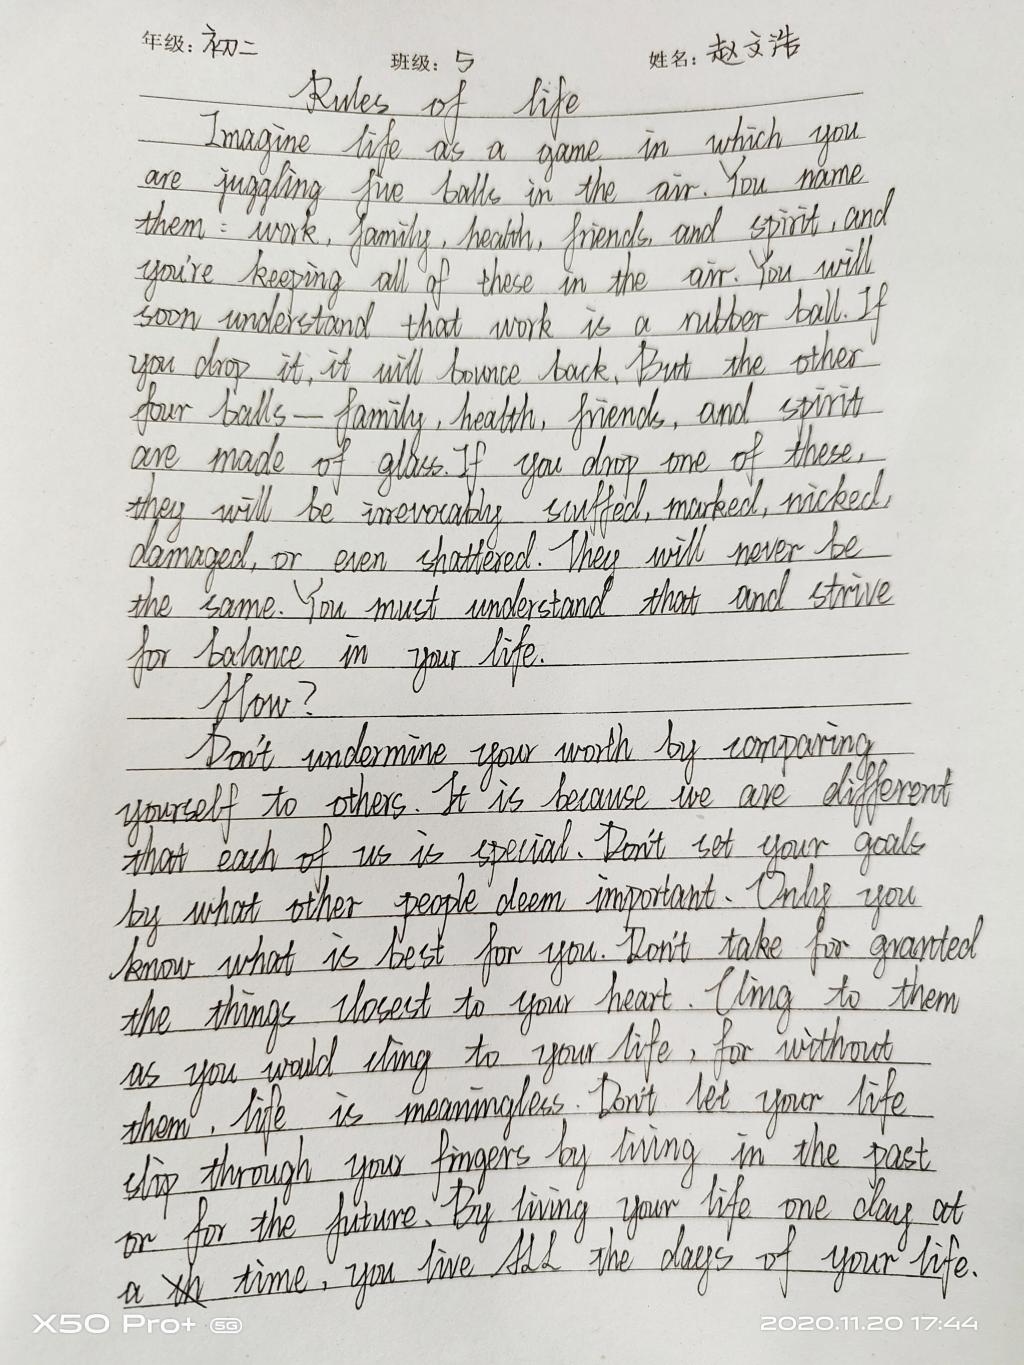 年级: 初二 班级: 5 姓名: 赵文浩
Rules of life
Imagine life as a game in which you
are juggling five balls in the air. You name
them: work, family, health, friends, and spirit, and
you're keeping all of these in the air. You will
soon understand that work is a rubber ball. If
you drop it, it will bounce back. But the other
four balls—family, health, friends, and spirit
are made of glass. If you drop one of these,
they will be irrevocably scuffed, marked, nicked,
damaged, or even shattered. They will never be
the same. You must understand that and strive
for balance in your life.
How?
Don't undermine your worth by comparing
yourself to others. It is because we are different
that each of us is special. Don't set your goals
by what other people deem important. Only you
know what is best for you. Don't take for granted
the things closest to your heart. Cling to them
as you would cling to your life, for without
them, life is meaningless. Don't let your life
slip through your fingers by living in the past
or for the future. By living your life one day at
a time, you live ALL the days of your life.
X50 Pro+ 5G 2020.11.20 17:44